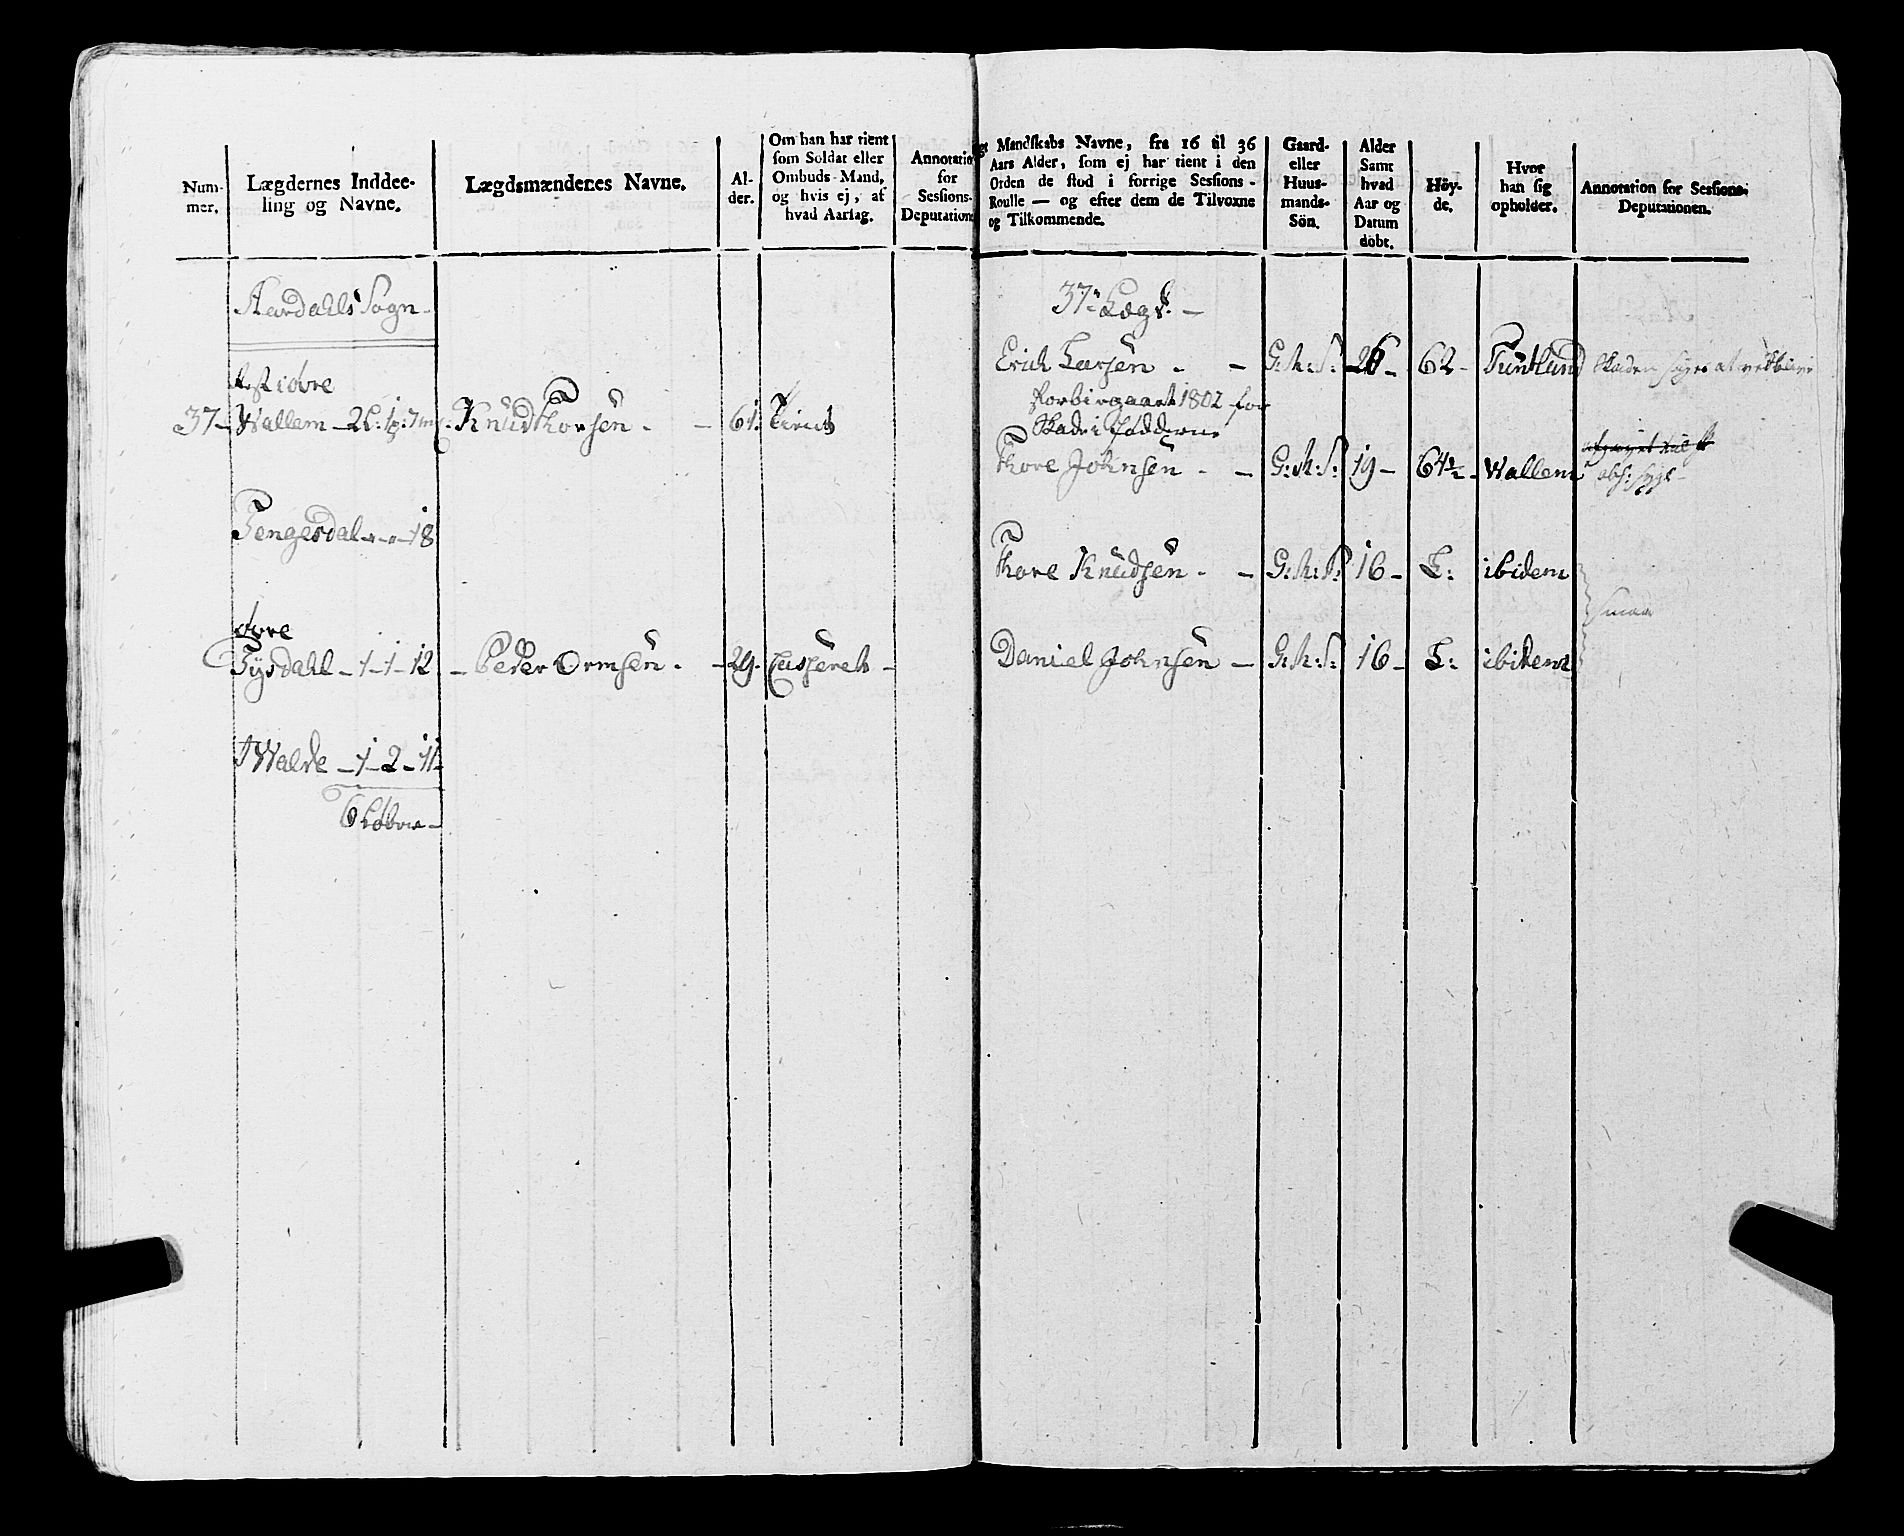 Num-
mer.
Lægdernes Inddee-
ling og Navne.
Lægdsmændenes Navne.
Al-
der.
Om han har tient
som Soldat eller
Ombuds-Mand,
og hvis ej, af
hvad Aarsag.
Annotatio
for
Sessions-
Deputation
Aardahls Sogn
Rest i øvre
37 Wallem 2L: 1p: 7m Knud Thorsen 61
Tengesdal 18
øvre
Tysdahl 1 1 12 Peder Ormsen 29 Casseret
Walde 1 2 11
6 Løber
Mandskabs Navne, fra 16 til 36
Aars Alder, som ej har tient i den
Orden de stod i forrige Sessions-
Roulle — og efter dem de Tilvoxne
og Tilkommende.
Gaard-
eller
Huus-
mands-
Sön.
Alder
Samt
hvad
Aar og
Datum
döbt.
Höy-
de.
Hvor
han sig
opholder.
Annotation for Sessions-
Deputationen.
37te Lægd
Erich Larsen G:M:S: 26 62 Tuntland Skaden siges at vedblive
Forbigaaet 1802 for
Skade i Fødderne
Thore Johnsen G:M:S: 19 64½ Wallem
obs: syge
Thore Knudsen G:M:S: 16 L: ibidem
smaa
Daniel Johnsen G:M:S: 16 L: ibidem